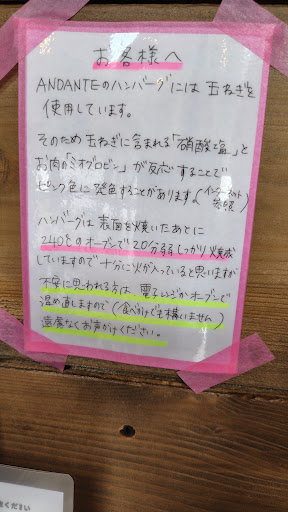 お客様へ
ANDANTEのハンバーグには玉ねぎを
使用しています。
そのため玉ねぎに含まれる「硝酸塩」と
お肉の「ミオグロビン」が反応することで
ピンク色に発色することがあります。(インターネット
参照)
ハンバーグは表面を焼いたあとに
240℃のオーブンで20分弱しっかり焼成
していますので十分に火が入っていると思いますが
不安に思われる方は電子レンジかオーブンで
温め直しますので(食べかけでも構いません)
遠慮なくお声がけください。
ください